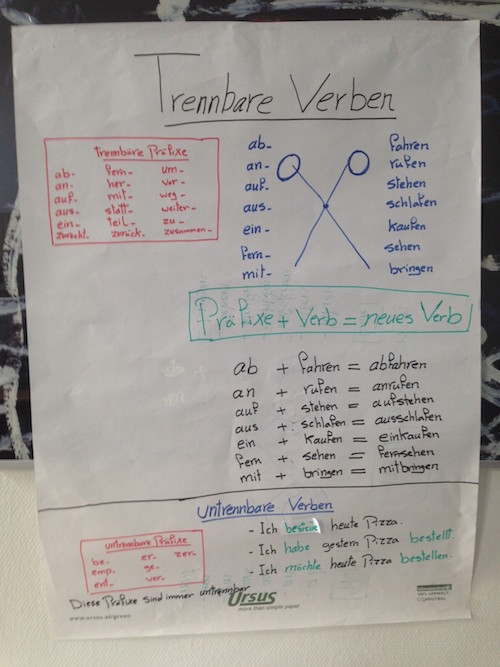 Trennbare Verben
trennbare Präfixe
ab- fern- um-
an- her- vor-
auf- mit- weg-
aus- statt- weiter-
ein- teil- zu-
zurück. zusammen-
ab- fahren
an- rufen
auf- stehen
aus- schlafen
ein- kaufen
fern- sehen
mit- bringen
Präfixe + Verb = neues Verb
ab + fahren = abfahren
an + rufen = anrufen
auf + stehen = aufstehen
aus + schlafen = ausschlafen
ein + kaufen = einkaufen
fern + sehen = fernsehen
mit + bringen = mitbringen
untrennbare Verben
untrennbare Präfixe
be- er- zer-
emp- ge-
ent- ver-
- Ich heute Pizza.
- Ich habe gestern Pizza bestellt.
- Ich möchte heute Pizza bestellen.
Diese Präfixe sind immer untrennbar
Ursus
more than simple paper
www.ursus.at/green